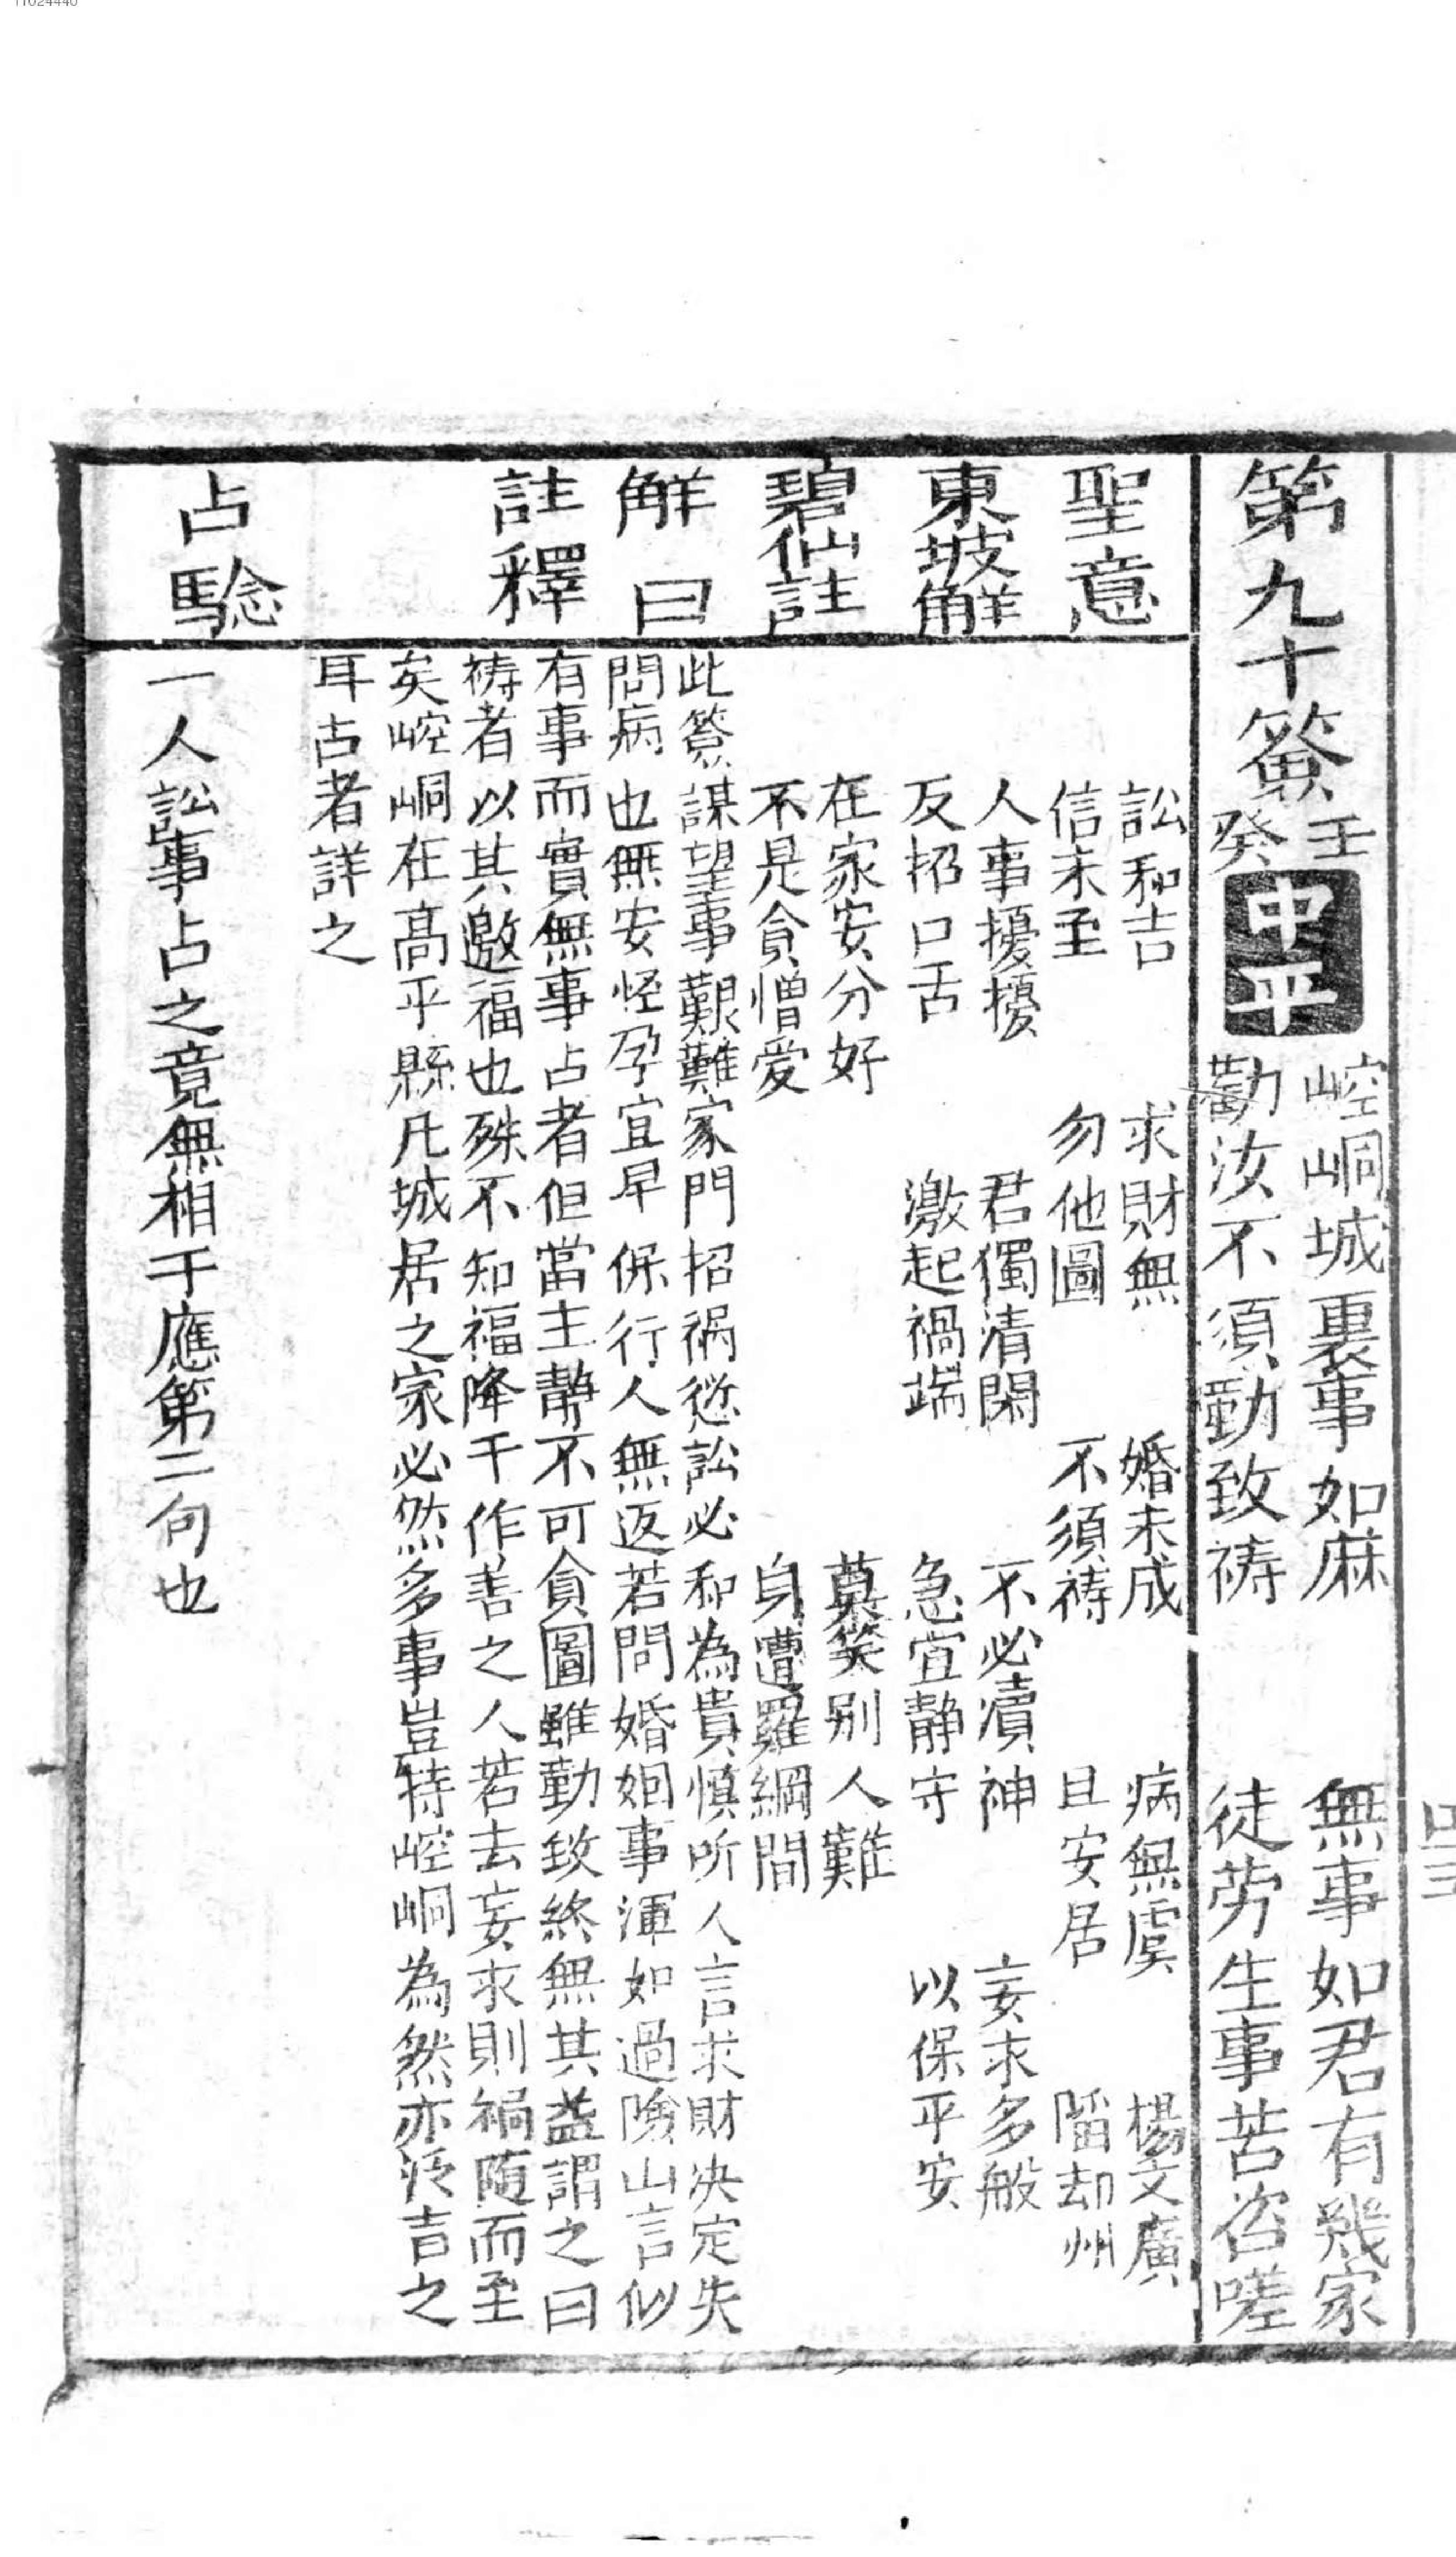 11024440
第九十簽壬癸中平
崆峒城裏事如麻　無事如君有幾家
勸汝不須勤致祷　徒劳生事苦咨嗟
聖意
訟和吉　求財無　婚未成　病無虞　楊文廣
信未至　勿他圖　不須祷　且安居　陷却州
東坡解
人事擾擾　君獨清閑　不必瀆神　妄求多般
反招口舌　激起禍端　急宜静守　以保平安
碧仙註
在家安分好　莫笑别人難
不是貪憎愛　身遭羅網間
解曰
此簽謀望事艱難家門招祸愆訟必和為貴慎听人言求財决定失
問病也無安怪孕宜早保行人無返若問婚姻事渾如過險山言似
註釋
有事而實無事占者但當主静不可貪圖雖勤致終無其益謂之曰
祷者以其邀福也殊不知福降于作善之人若去妄求則禍隨而至
矣崆峒在高平縣凡城居之家必然多事豈特崆峒為然亦泛言之
耳占者詳之
占驗
一人訟事占之竟無相干應第二句也